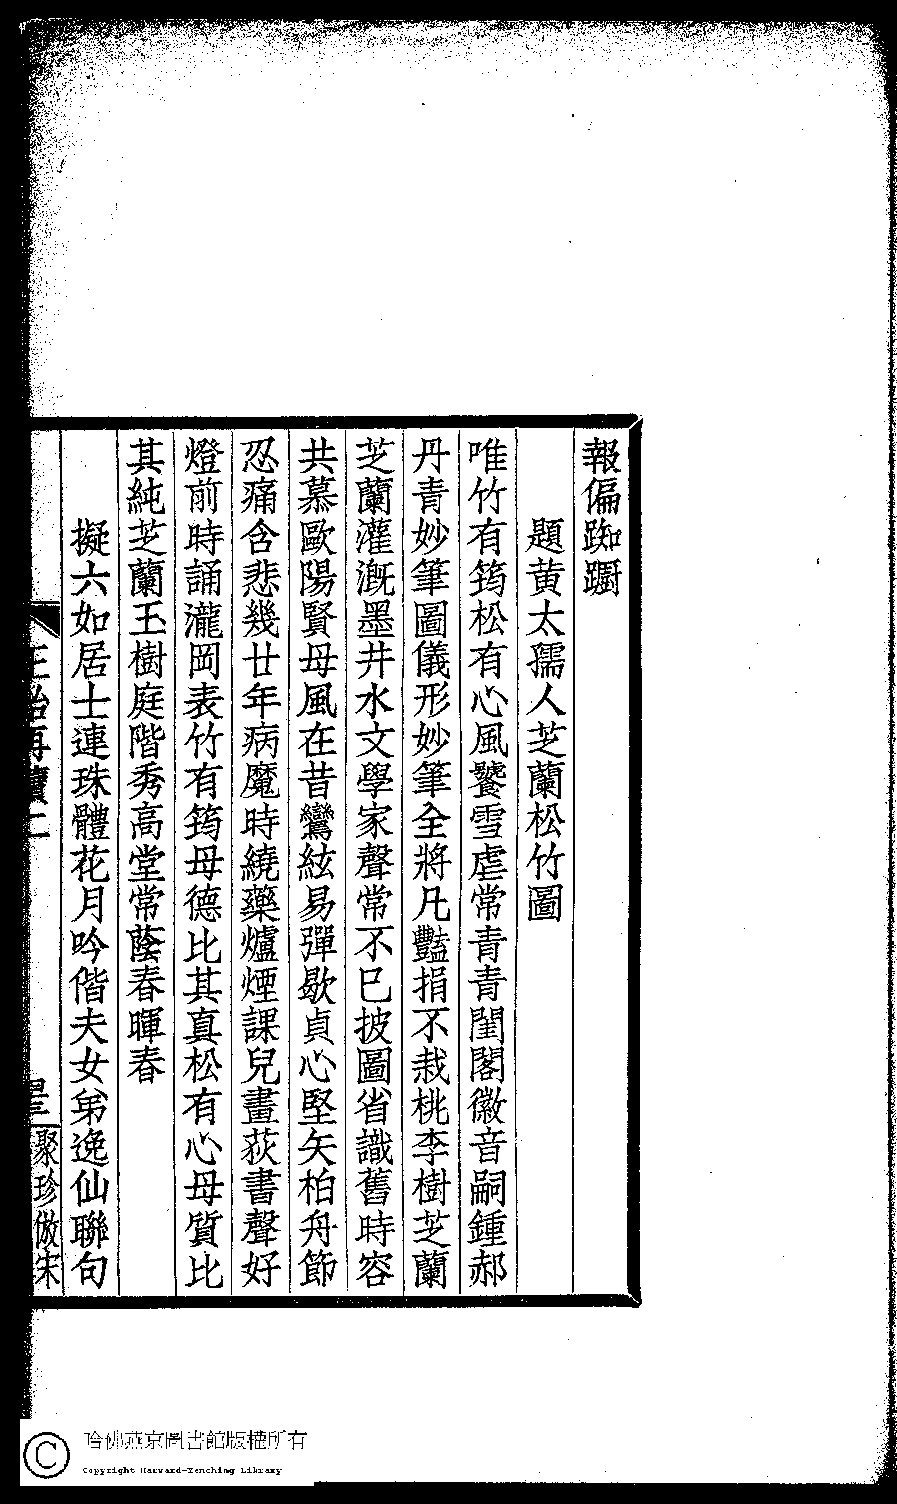 報偏踟躕
題黃太孺人芝蘭松竹圖
唯竹有筠松有心風饕雪虐常青青閨閣徽音嗣鍾郝
丹青妙筆圖儀形妙筆全將凡豔捐不栽桃李樹芝蘭
芝蘭灌漑墨井水文學家聲常不已披圖省識舊時容
共慕歐陽賢母風在昔鸞絃易彈歇貞心堅矢柏舟節
忍痛含悲幾廿年病魔時繞藥爐煙課兒畫荻書聲好
燈前時誦瀧岡表竹有筠母德比其真松有心母質比
其純芝蘭玉樹庭階秀高堂常蔭春暉春
擬六如居士連珠體花月吟偕夫女弟逸仙聯句
聚珍倣宋
哈佛燕京圖書館版權所有
Copyright Harvard-Yenching Library